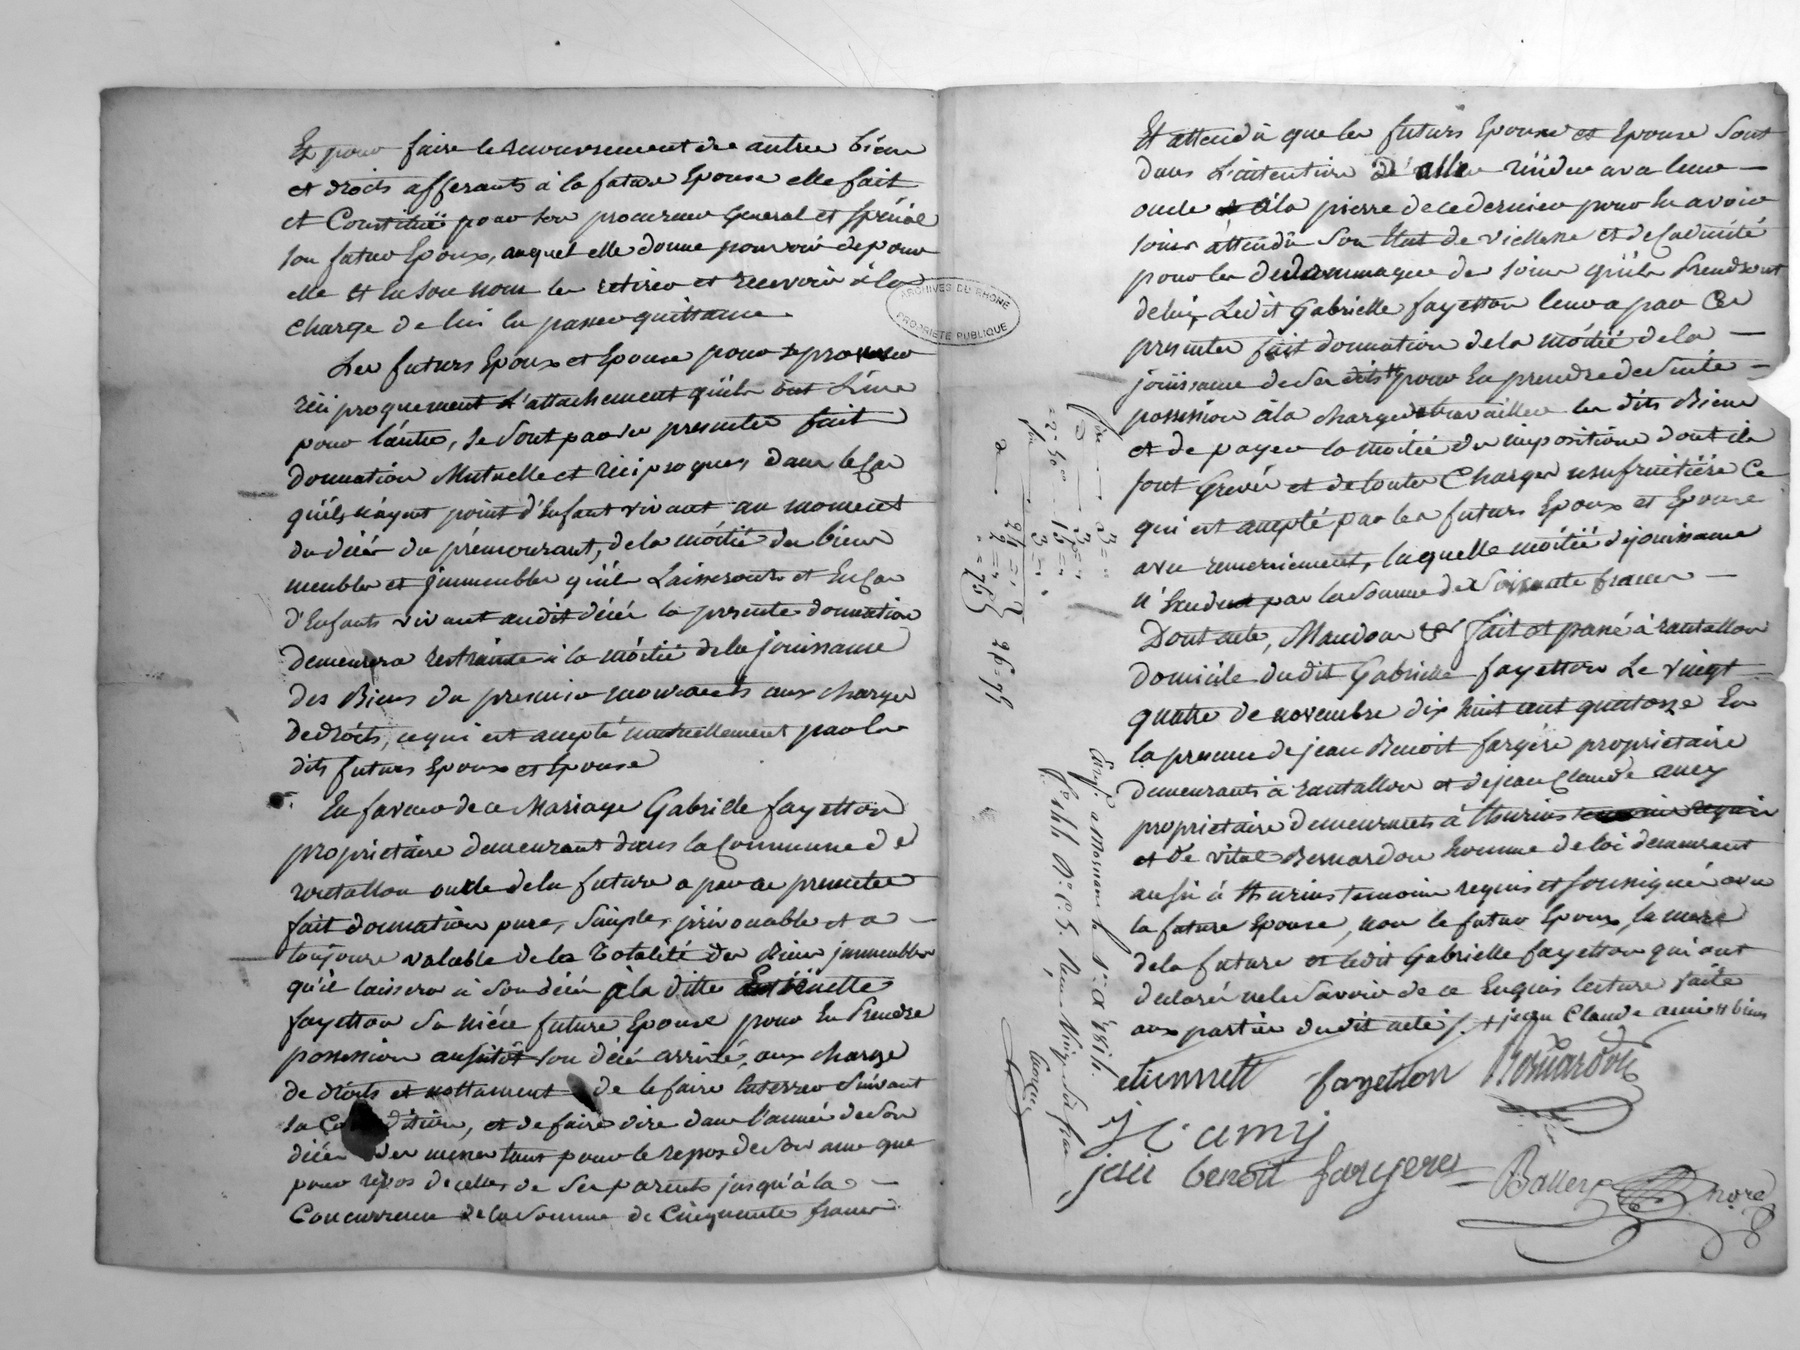 Et pour faire le recouvrement des autres biens
et droits afferants à la future Epouse elle fait
et Constitué pour son procureur General et spécial
son futur Epoux, auquel elle donne pouvoir de pour
elle et en son nom les retirer et recevoir à la
charge de lui en passer quittance.
Les futurs Epoux et Epouse pour se prouver
réciproquement L'attachement qu'ils ont L'un
pour L'autre, se sont par ces presentes fait
donnation Mutuelle et réciproque, dans le Cas
qu'ils n'ayent point d'Enfant vivant au moment
du décés du prémourant, de la moitié des biens
meubles et immeubles qu'il Laisseront et En Cas
d'Enfants vivant audit décés la presente donnation
demeurera restrainte à la moitié de la jouissance
des Biens du premier mourant aux charges
de droits, ce qui est accepté mutuellement par les
dits futurs Epoux et Epouse
En faveur de ce Mariage Gabrielle fayetton
propriétaire demeurant dans la Commune de
rontallon oncle de la future a par ces presentes
fait donnation pure, Simple, irrévocable et a
toujours valable de la Totalité des Biens immeubles
qu'il laissera à son décés à la ditte Etiennette
fayetton Sa niéce future Epouse pour En Prendre
possession ausitôt son décé arrivé, aux charge
de droits et nottament de le faire Enterrer Suivant
sa Condition, et de faire dire dans l'année de Son
décés des messes tant pour le repos de Son ame que
pour repos de celles de Ses parents jusqu'à la
Concurrence de la Somme de Cinquante francs
ARCHIVES DU RHONE
PROPRIETE PUBLIQUE
Et attendu que les futurs Epoux et Epouse Sont
dans L'intention d'aller résider avec leur
oncle à la pierre de ce dernier pour En avoir
soins attendu Son Etat de viellesse et de Caducité
pour les dedommager des soins qu'ils Prendront
de lui, Ledit Gabrielle fayetton leur a par Ces
presentes fait donnation de la moitié de la
jouissance de Ses dits pour En prendre de Suite
possession à la charge de travailler les dits Biens
et de payer la moitié des impositions dont ils
sont Grevés et de toutes Charges usufruitière Ce
qui est accepté par les futurs Epoux et Epouse
avec remerciement, laquelle moitié de jouissance
n'Excedent pas la Somme de Soixante francs
Dont acte, Mandons &r fait et passé à rontallon
domicile dudit Gabrielle fayetton Le vingt
quatre de novembre dix huit cent quatorze En
la presence de jean Benoit fargère propriétaire
demeurants à rontallon et de jean Claude
propriétaire demeurants à thurins
et de vital Bernardon homme de loi demeurant
aussi à thurins temoins requis et soussignés avec
la future Epouse, non le futur Epoux, la mere
de la future et ledit Gabrielle fayetton qui ont
declaré ne le Savoir de ce Enquis lecture faite
aux parties dudit acte /. + jean Claude amis # biens
etiennette fayetton Bernardon
J C amy
jean benoit fargere